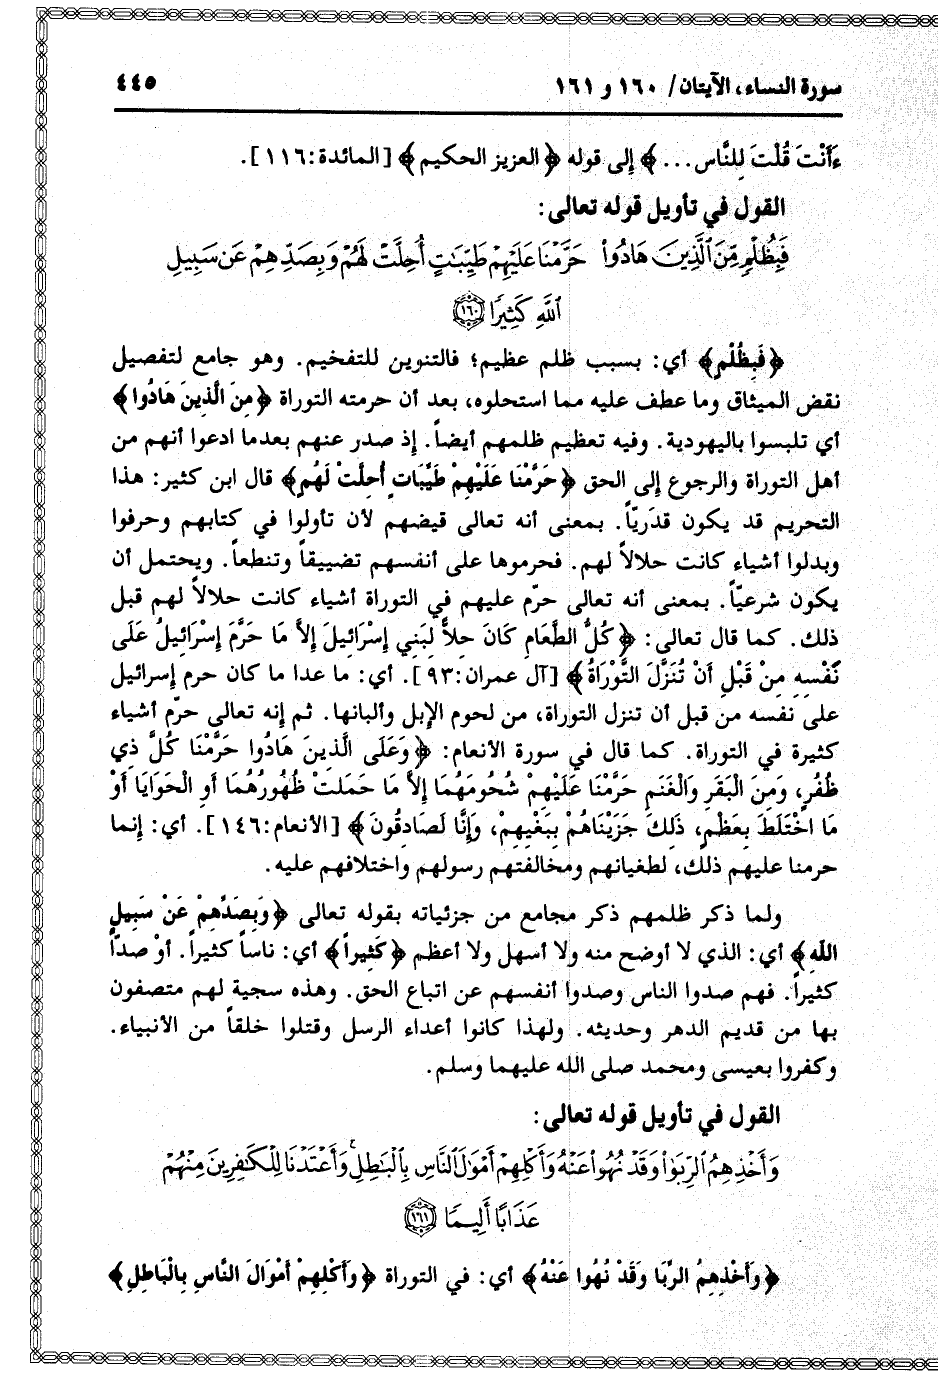 سورة النساء، الآيتان / ١٦٠ و ١٦١
٤٤٥
ءَأَنْتَ قُلْتَ لِلنَّاسِ... ﴾ إلى قوله ﴿ العزيز الحكيم ﴾ [المائدة: ١١٦].
القول في تأويل قوله تعالى:
فَبِظُلْمٍ مِّنَ ٱلَّذِينَ هَادُوا۟ حَرَّمْنَا عَلَيْهِمْ طَيِّبَٰتٍ أُحِلَّتْ لَهُمْ وَبِصَدِّهِمْ عَن سَبِيلِ
ٱللَّهِ كَثِيرًا ١٦٠
﴿ فَبِظُلْمٍ ﴾ أي: بسبب ظلم عظيم؛ فالتنوين للتفخيم. وهو جامع لتفصيل
نقض الميثاق وما عطف عليه مما استحلوه، بعد أن حرمته التوراة ﴿ مِنَ الَّذِينَ هَادُوا ﴾
أي تلبسوا باليهودية. وفيه تعظيم ظلمهم أيضاً. إذ صدر عنهم بعدما ادعوا أنهم من
أهل التوراة والرجوع إلى الحق ﴿ حَرَّمْنَا عَلَيْهِمْ طَيِّبَاتٍ أُحِلَّتْ لَهُم ﴾ قال ابن كثير: هذا
التحريم قد يكون قدَريّاً. بمعنى أنه تعالى قيضهم لأن تأولوا في كتابهم وحرفوا
وبدلوا أشياء كانت حلالاً لهم. فحرموها على أنفسهم تضييقاً وتنطعاً. ويحتمل أن
يكون شرعيّاً. بمعنى أنه تعالى حرّم عليهم في التوراة أشياء كانت حلالاً لهم قبل
ذلك. كما قال تعالى: ﴿ كُلُّ الطَّعَامِ كَانَ حِلاًّ لِبَنِي إِسْرَائِيلَ إِلاَّ مَا حَرَّمَ إِسْرَائِيلُ عَلَى
نَفْسِهِ مِنْ قَبْلِ أَنْ تُنَزَّلَ التَّوْرَاةُ ﴾ [آل عمران: ٩٣]. أي: ما عدا ما كان حرم إسرائيل
على نفسه من قبل أن تنزل التوراة، من لحوم الإبل وألبانها. ثم إنه تعالى حرّم أشياء
كثيرة في التوراة. كما قال في سورة الأنعام: ﴿ وَعَلَى الَّذِينَ هَادُوا حَرَّمْنَا كُلَّ ذِي
ظُفُرٍ، وَمِنَ الْبَقَرِ وَالْغَنَمِ حَرَّمْنَا عَلَيْهِمْ شُحُومَهُمَا إِلاَّ مَا حَمَلَتْ ظُهُورُهُمَا أَوِ الْحَوَايَا أَوْ
مَا اخْتَلَطَ بِعَظْمٍ، ذَلِكَ جَزَيْنَاهُمْ بِبَغْيِهِمْ، وَإِنَّا لَصَادِقُونَ ﴾ [الأنعام: ١٤٦]. أي: إنما
حرمنا عليهم ذلك، لطغيانهم ومخالفتهم رسولهم واختلافهم عليه.
ولما ذكر ظلمهم ذكر مجامع من جزئياته بقوله تعالى ﴿ وَبِصَدِّهِمْ عَنْ سَبِيلِ
اللَّهِ ﴾ أي: الذي لا أوضح منه ولا أسهل ولا أعظم ﴿ كَثِيراً ﴾ أي: ناساً كثيراً. أوْ صدّاً
كثيراً. فهم صدوا الناس وصدوا أنفسهم عن اتباع الحق. وهذه سجية لهم متصفون
بها من قديم الدهر وحديثه. ولهذا كانوا أعداء الرسل وقتلوا خلقاً من الأنبياء.
وكفروا بعيسى ومحمد صلى الله عليهما وسلم.
القول في تأويل قوله تعالى:
وَأَخْذِهِمُ ٱلرِّبَوٰا۟ وَقَدْ نُهُوا۟ عَنْهُ وَأَكْلِهِمْ أَمْوَٰلَ ٱلنَّاسِ بِٱلْبَٰطِلِ ۚ وَأَعْتَدْنَا لِلْكَٰفِرِينَ مِنْهُمْ
عَذَابًا أَلِيمًا ١٦١
﴿ وَأَخْذِهِمُ الرِّبَا وَقَدْ نُهُوا عَنْهُ ﴾ أي: في التوراة ﴿ وَأَكْلِهِمْ أَمْوَالَ النَّاسِ بِالْبَاطِلِ ﴾